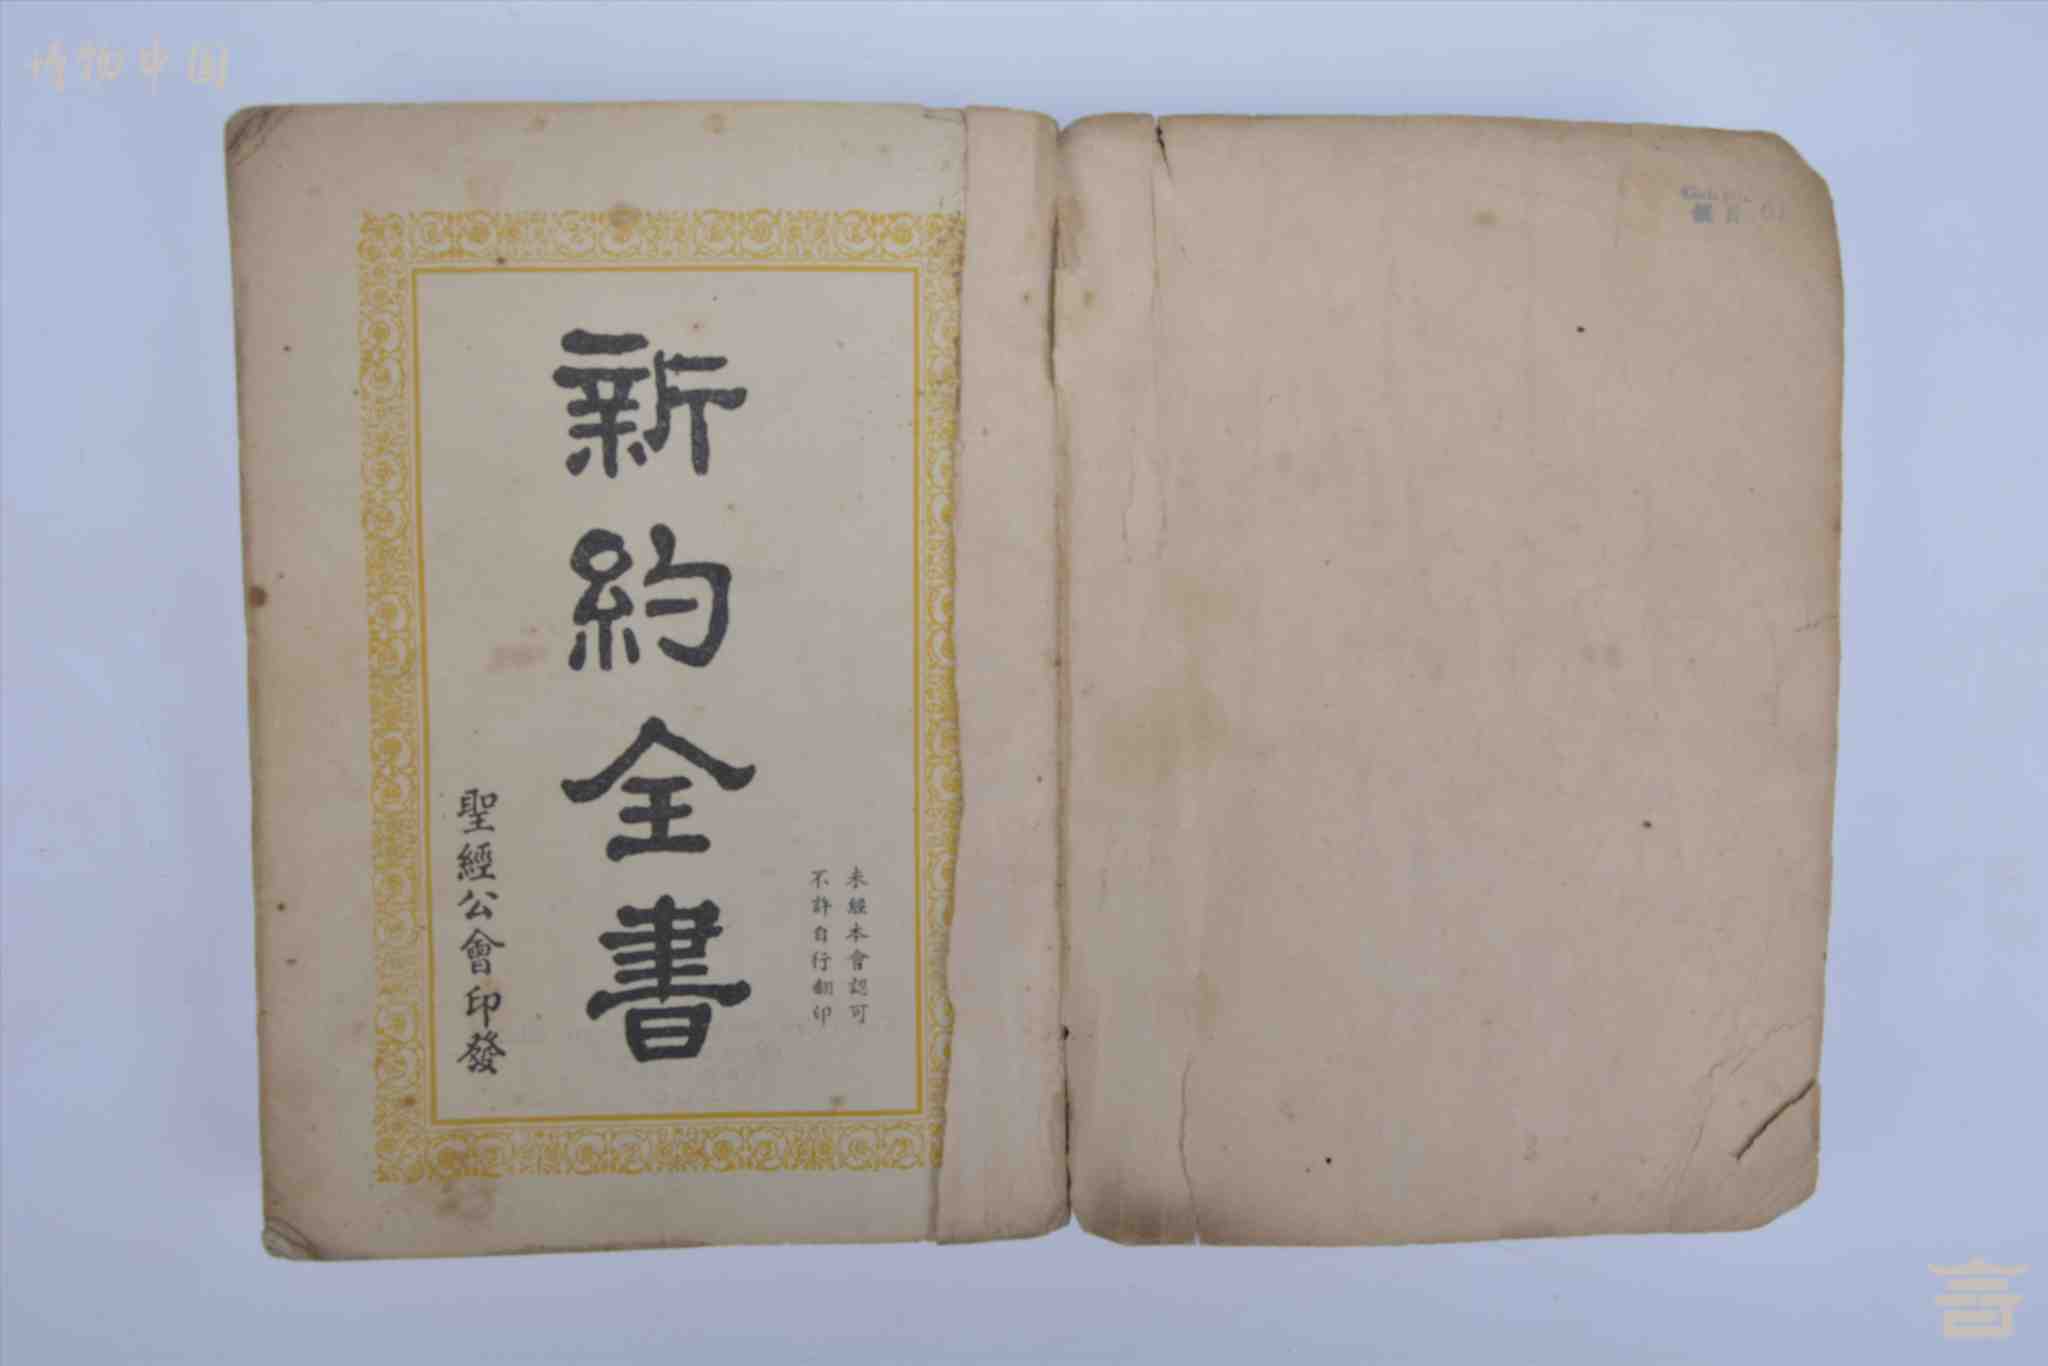 博物中国
未經本會認可
不許自行翻印
新約全書
聖經公會印發